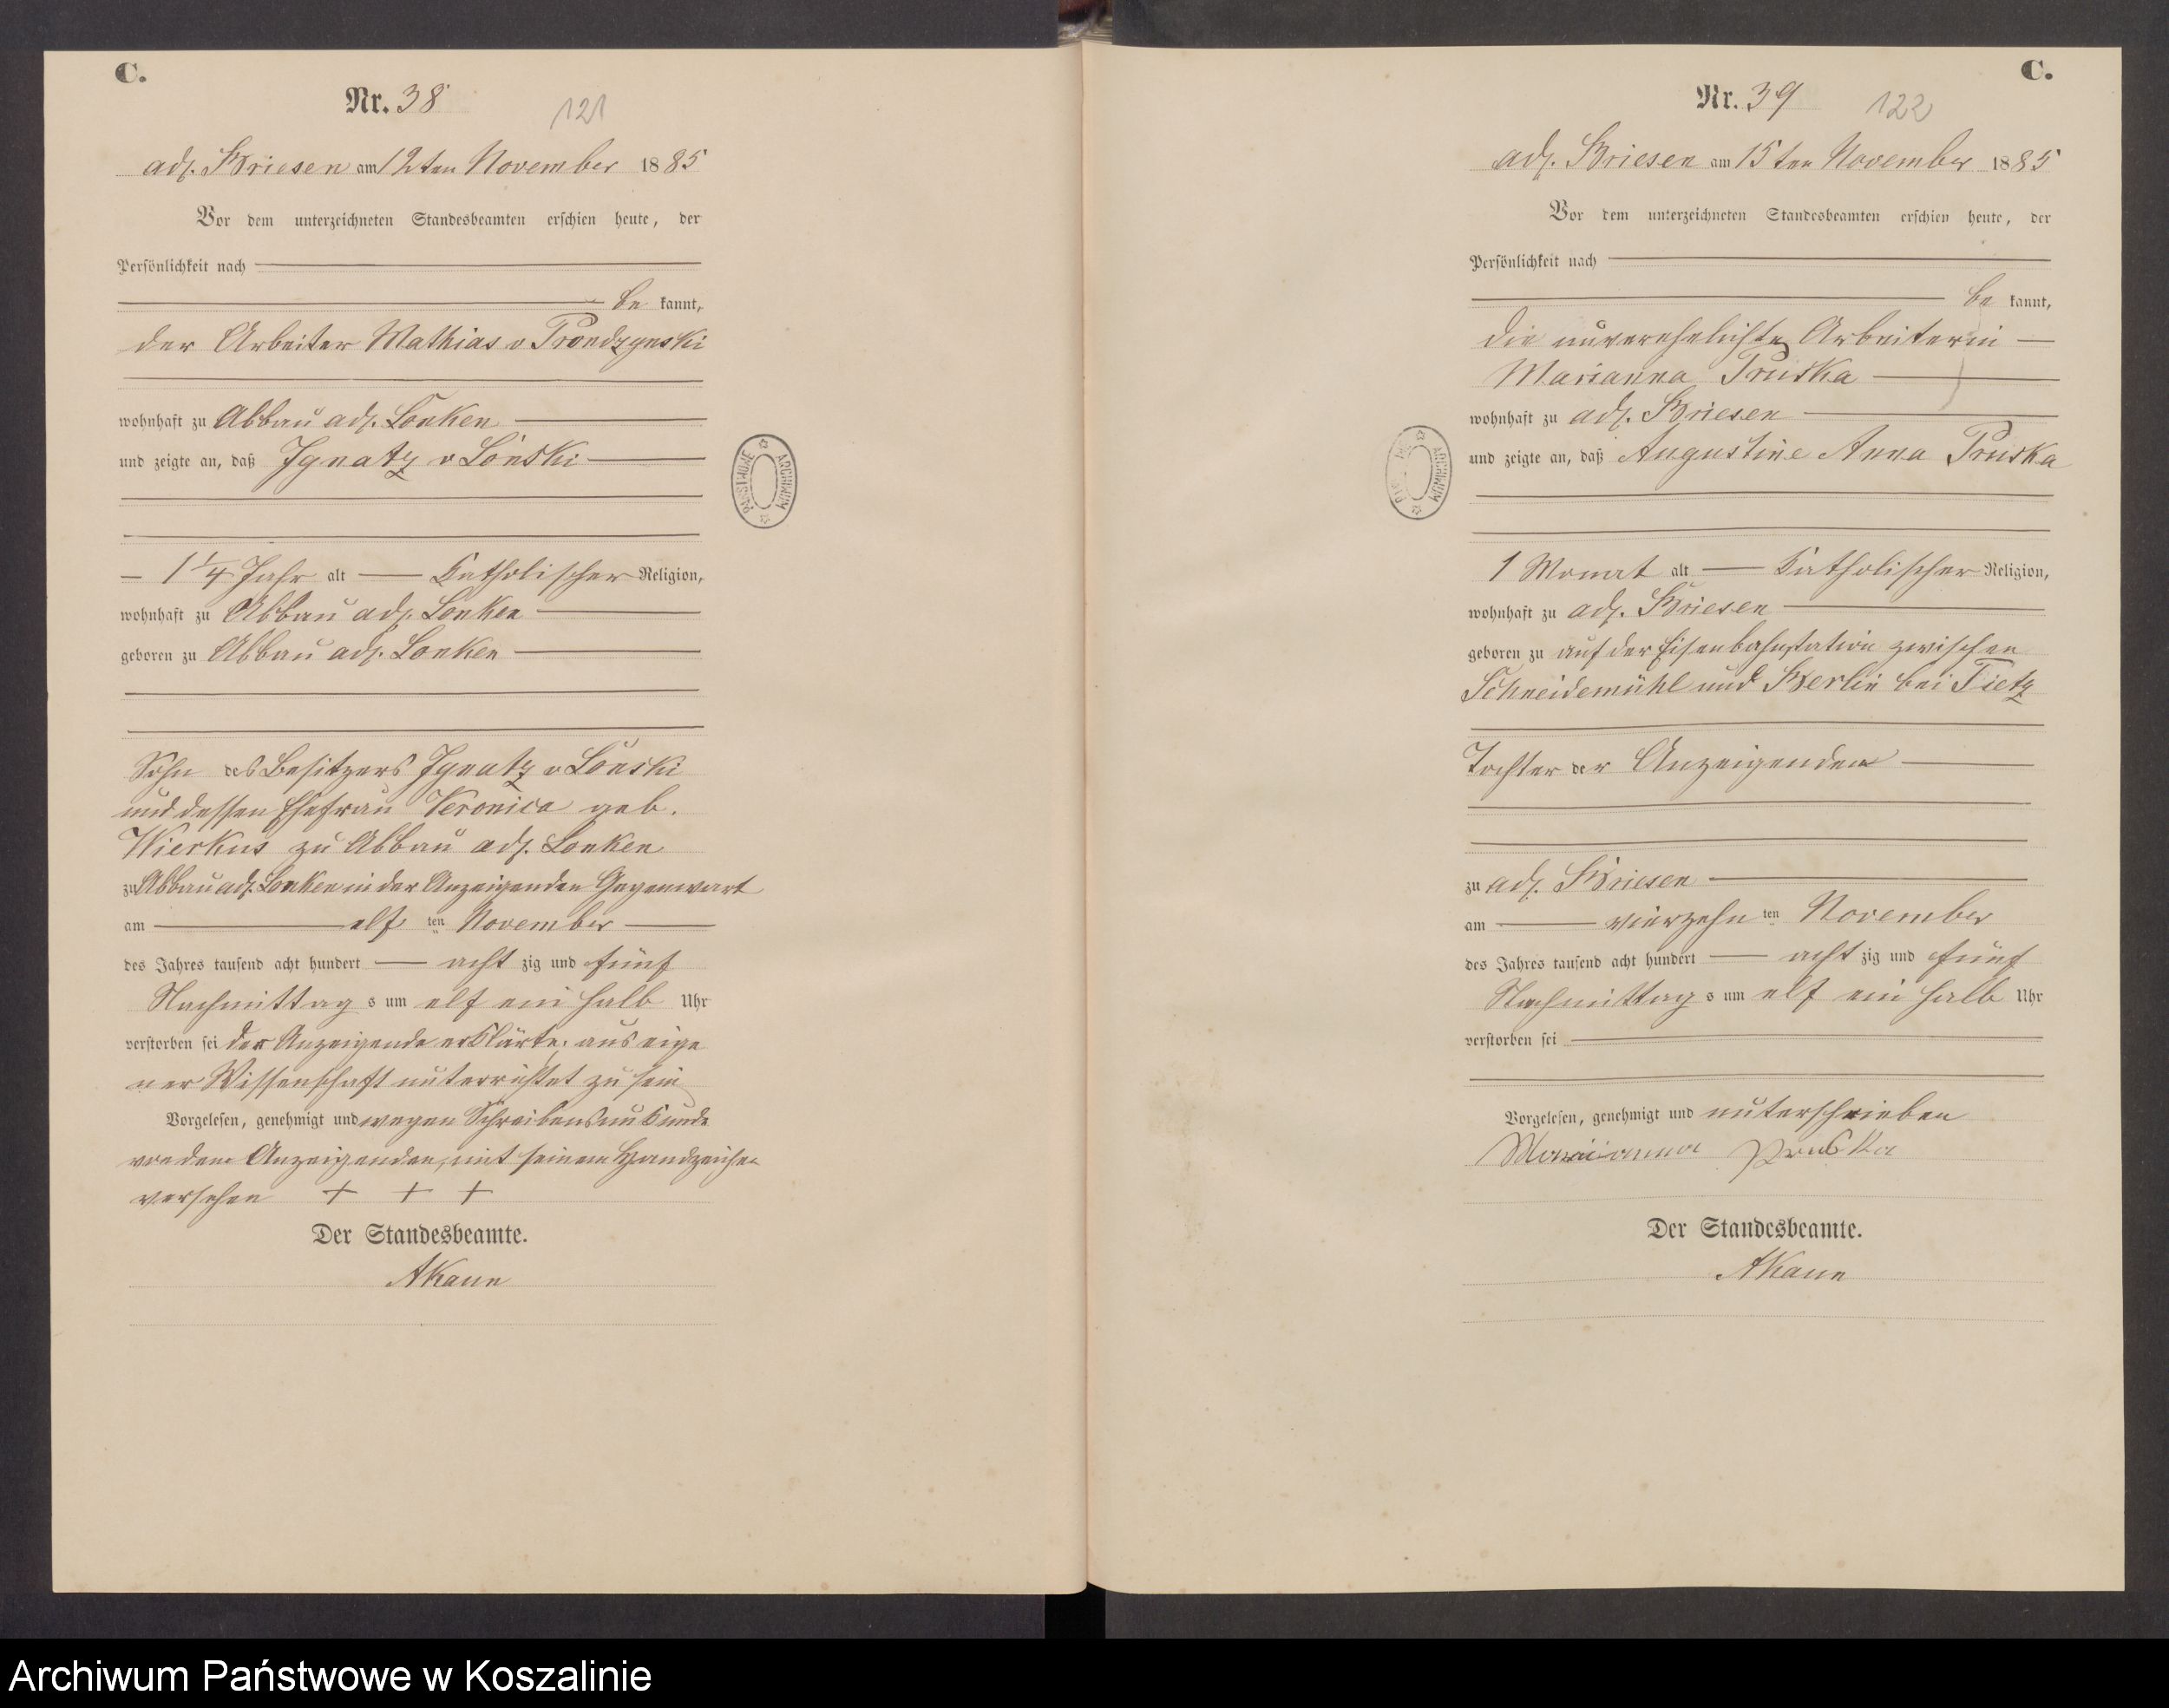 C.
Nr. 38
121
adl. Briesen am 12ten November 1885
Vor dem unterzeichneten Standesbeamten erschien heute, der
Persönlichkeit nach
be kannt,
der Arbeiter Mathias v Prondzynski
wohnhaft zu Abbau adl. Lonken
und zeigte an, daß Ignatz v Lónski
1 1/4 Jahr alt Katholischer Religion,
wohnhaft zu Abbau adl. Lonken
geboren zu Abbau adl. Lonken
Sohn des Besitzers Ignatz v Lónski
und dessen Ehefrau Veronica geb.
Wierkus zu Abbau adl. Lonken
zu Abbau adl. Lonken in der Anzeigenden Gegenwart
am elf ten November
des Jahres tausend acht hundert acht zig und fünf
Nachmittag s um elf ein halb Uhr
verstorben sei der Anzeigende erklärte, aus eige
ner Wissenschaft unterrichtet zu sein
Vorgelesen, genehmigt und wegen Schreibensunkunde
von dem Anzeigenden, mit seinem Handzeichen
versehen + + +
Der Standesbeamte.
AKaun
PAŃSTWOWE ARCHIWUM
C.
Nr. 39
122
adl. Briesen am 15ten November 1885
Vor dem unterzeichneten Standesbeamten erschien heute, der
Persönlichkeit nach
be kannt,
die unverehelichte Arbeiterin
Marianna Pruska
wohnhaft zu adl. Briesen
und zeigte an, daß Augustine Anna Pruska
1 Monat alt Katholischer Religion,
wohnhaft zu adl. Briesen
geboren zu auf der Eisenbahnstation zwischen
Schneidemühl und Berlin bei Tietz
Tochter der Anzeigenden
zu adl. Briesen
am vierzehn ten November
des Jahres tausend acht hundert acht zig und fünf
Nachmittag s um elf ein halb Uhr
verstorben sei
Vorgelesen, genehmigt und unterschrieben
Marianna Pruska
Der Standesbeamte.
AKaun
ARCHIWUM
Archiwum Państwowe w Koszalinie